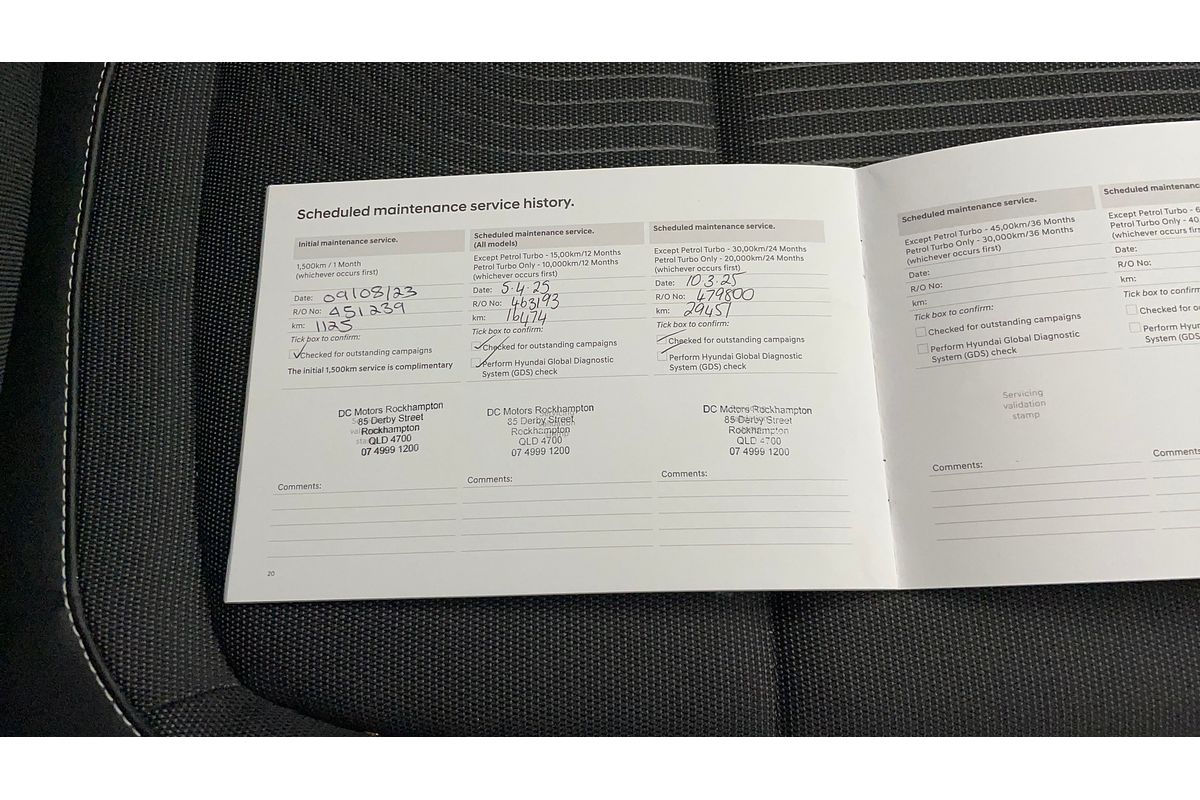 Scheduled maintenance service history.
Initial maintenance service.
1,500km / 1 Month
(whichever occurs first)
Date: 09/08/23
R/O No: 451239
km: 1125
Tick box to confirm:
Checked for outstanding campaigns
The initial 1,500km service is complimentary
DC Motors Rockhampton
85 Derby Street
Rockhampton
QLD 4700
07 4999 1200
Comments:
Scheduled maintenance service.
(All models)
Except Petrol Turbo - 15,00km/12 Months
Petrol Turbo Only - 10,000km/12 Months
(whichever occurs first)
Date: 5.4.25
R/O No: 463193
km: 16474
Tick box to confirm:
Checked for outstanding campaigns
Perform Hyundai Global Diagnostic
System (GDS) check
DC Motors Rockhampton
85 Derby Street
Rockhampton
QLD 4700
07 4999 1200
Comments:
Scheduled maintenance service.
Except Petrol Turbo - 30,00km/24 Months
Petrol Turbo Only - 20,000km/24 Months
(whichever occurs first)
Date: 10.3.25
R/O No: 479800
km: 29451
Tick box to confirm:
Checked for outstanding campaigns
Perform Hyundai Global Diagnostic
System (GDS) check
DC Motors Rockhampton
85 Derby Street
Rockhampton
QLD 4700
07 4999 1200
Comments:
20
Scheduled maintenance service.
Except Petrol Turbo - 45,00km/36 Months
Petrol Turbo Only - 30,000km/36 Months
(whichever occurs first)
Date:
R/O No:
km:
Tick box to confirm:
Checked for outstanding campaigns
Perform Hyundai Global Diagnostic
System (GDS) check
Servicing
validation
stamp
Comments:
Scheduled maintenanc
Except Petrol Turbo - 6
Petrol Turbo Only - 40,
(whichever occurs firs
Date:
R/O No:
km:
Tick box to confirm
Checked for outs
Perform Hyunda
System (GDS)
Comments: